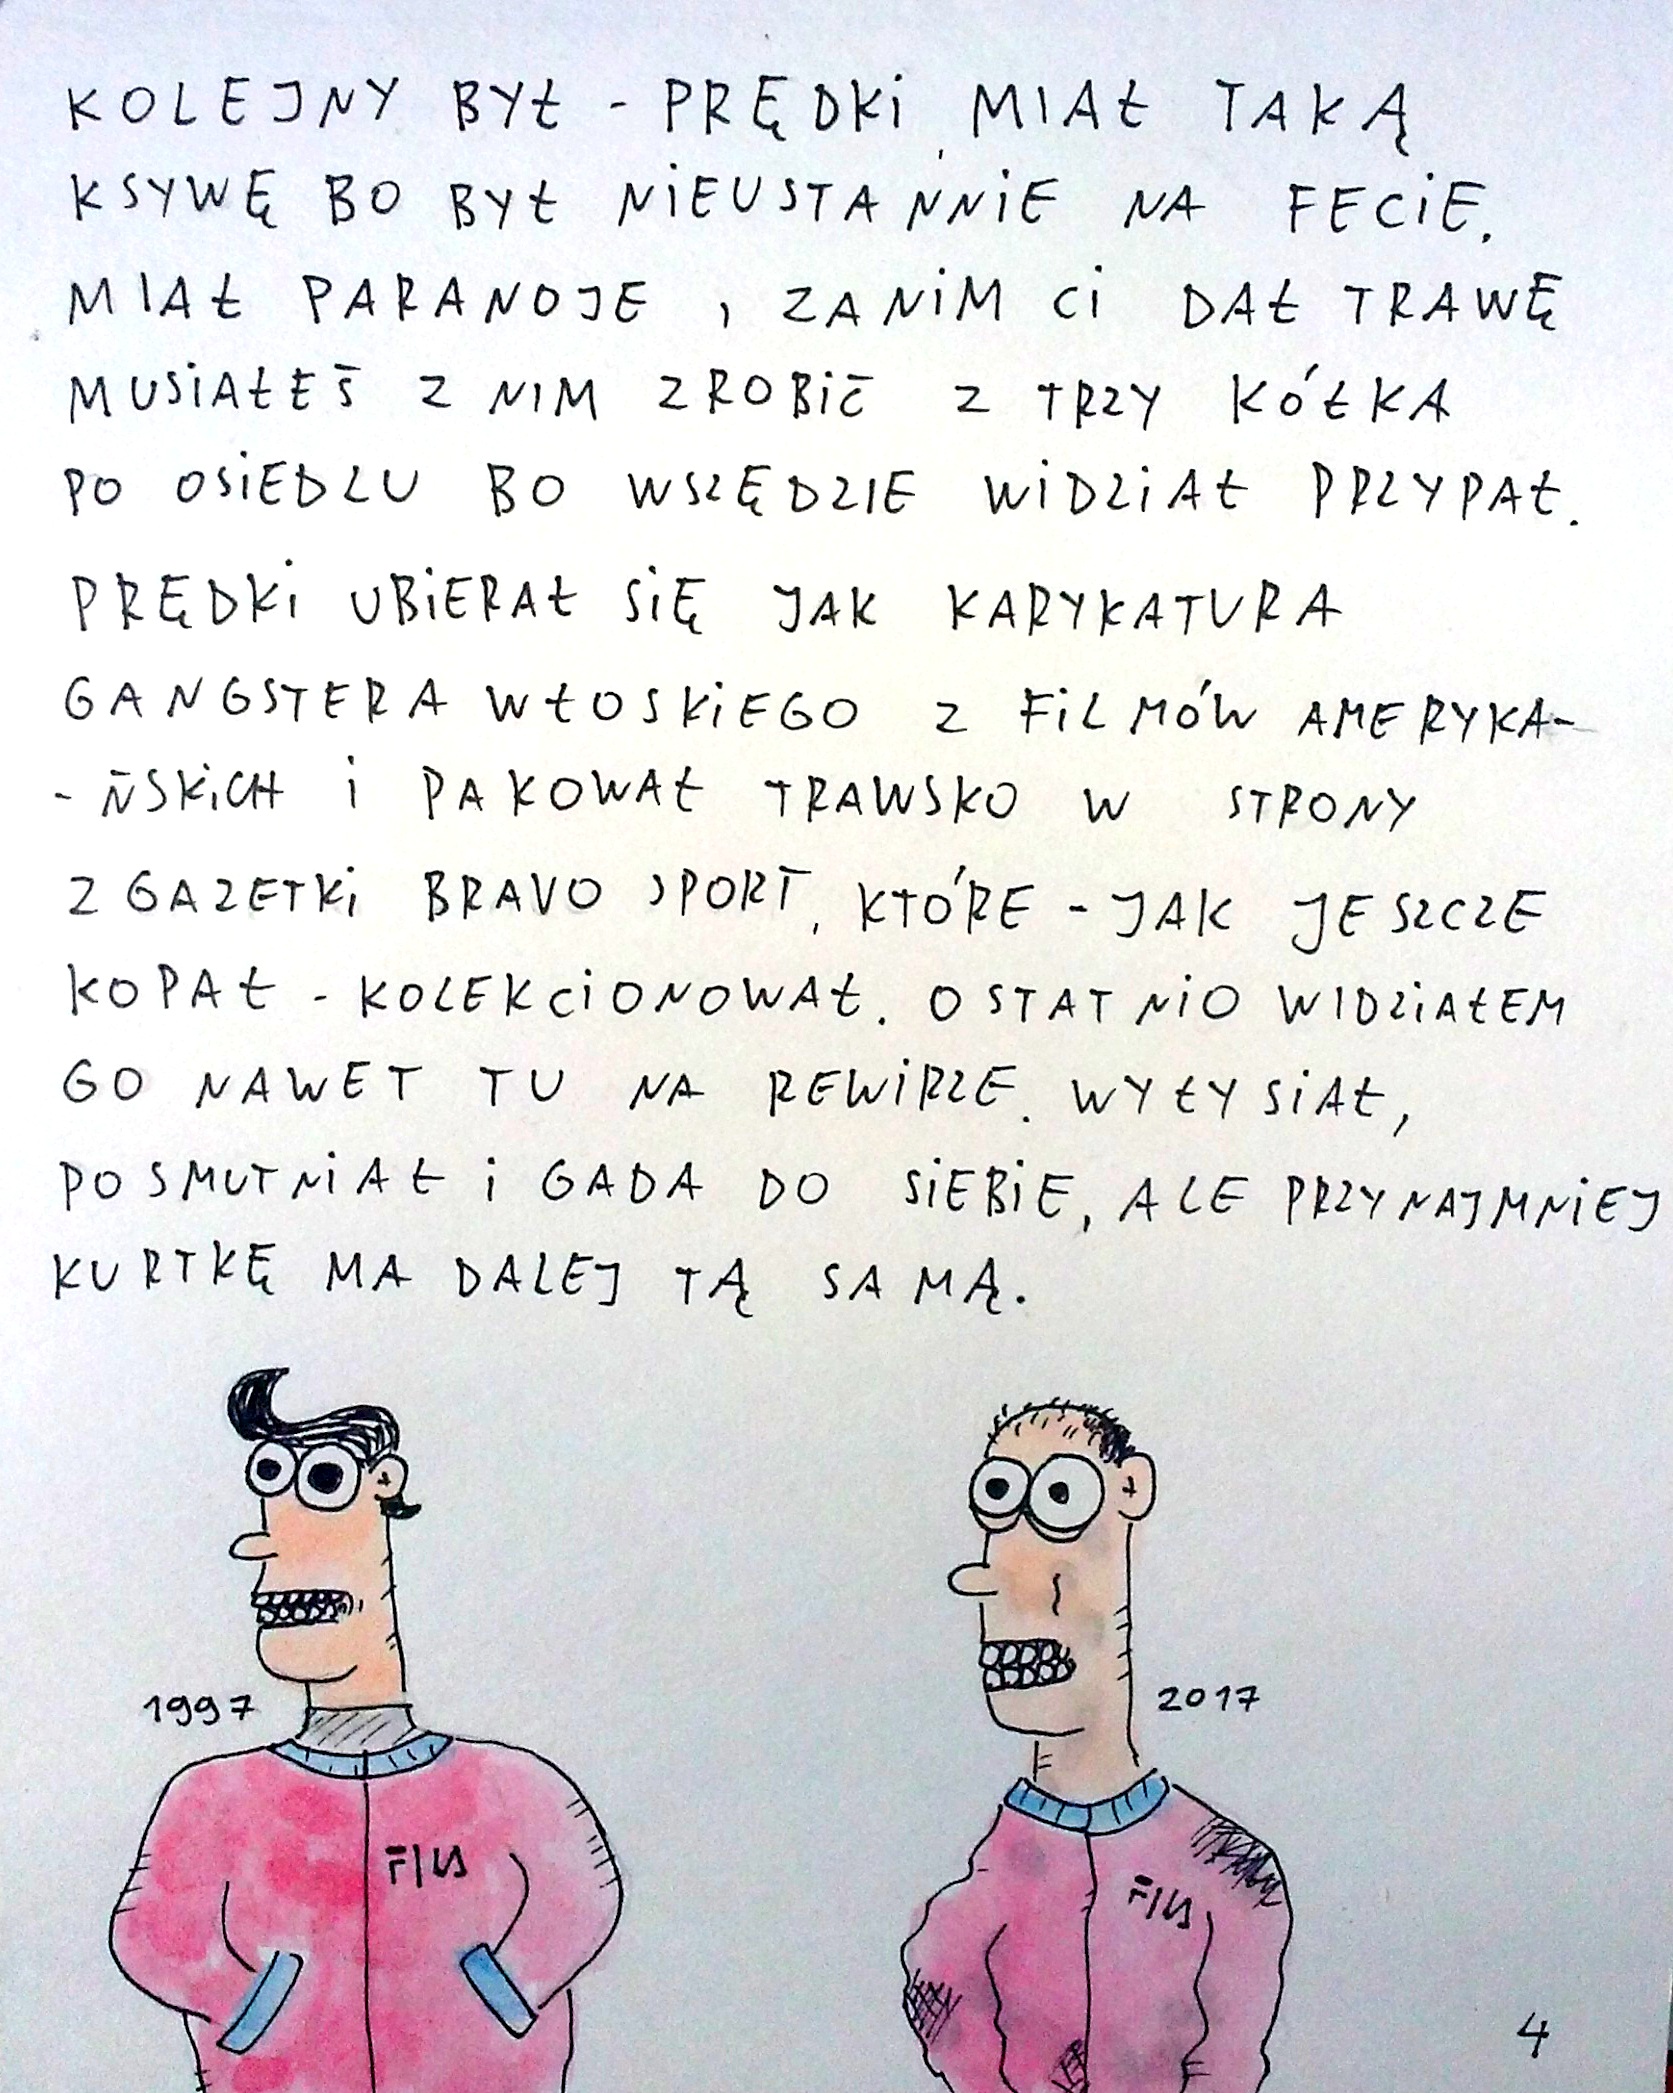 KOLEJNY BYŁ - PRĘDKI, MIAŁ TAKĄ
KSYWĘ BO BYŁ NIEUSTANNIE NA FECIE.
MIAŁ PARANOJE, ZANIM CI DAŁ TRAWĘ
MUSIAŁEŚ Z NIM ZROBIĆ Z TRZY KÓŁKA
PO OSIEDLU BO WSZĘDZIE WIDZIAŁ PRZYPAŁ.
PRĘDKI UBIERAŁ SIĘ JAK KARYKATURA
GANGSTERA WŁOSKIEGO Z FILMÓW AMERYKA-
-ŃSKICH I PAKOWAŁ TRAWSKO W STRONY
Z GAZETKI BRAVO SPORT, KTÓRE - JAK JESZCZE
KOPAŁ - KOLEKCIONOWAŁ. OSTATNIO WIDZIAŁEM
GO NAWET TU NA REWIRZE. WYŁYSIAŁ,
POSMUTNIAŁ I GADA DO SIEBIE, ALE PRZYNAJMNIEJ
KURTKĘ MA DALEJ TĄ SAMĄ.
1997
2017
4